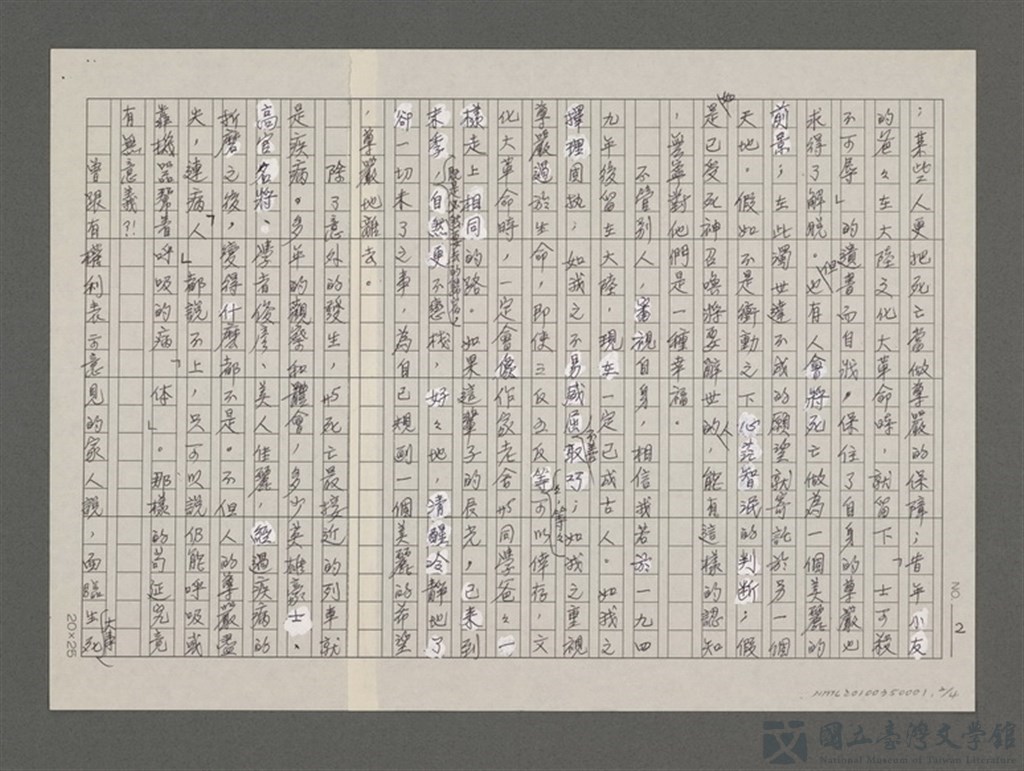 ；某些人更把死亡當做尊嚴的保障；昔年小友
的爸々在大陸文化大革命時，就留下「士可殺
不可辱」的遺書而自戕，保住了自身的尊嚴也
求得了解脫。但也有人會將死亡做為一個美麗的
前景；在此濁世達不成的願望就寄託於另一個
天地。假如不是衝動之下心茫智泯的判斷；假
如是已受死神召喚將要辭世的人，能有這樣的認知
，無寧對他們是一種幸福。
不管別人，審視自身，相信我若於一九四
九年後留在大陸，現在一定已成古人。如我之
擇理固執；如我之不易威屈取巧；如我之重視
尊嚴過於生命，即使三反五反等々，等々可以倖存，文
化大革命時，一定會像作家老舍與同學爸々一
樣走上相同的路。如果這輩子的辰光，已來到
末季，既是必然要去的歸宿，自然更不戀棧，好々地，清醒冷靜地了
卻一切未了之事，為自己規劃一個美麗的希望
，尊嚴地離去。
除了意外的發生，與死亡最接近的列車就
是疾病。多年的觀察和體會，多少英雄豪士、
高官名將、學者俊彥、美人佳麗，經過疾病的
折磨之後，變得什麼都不是。不但人的尊嚴盡
失，連「病人」都說不上，只可以說仍能呼吸或
靠機器幫着呼吸的「病體」。那樣的苟延究竟
有無意義？！
曾跟有權利表示意見的家人說，面臨生死大事
20×25
2
NMTL20100350001, 2/4
國立臺灣文學館
National Museum of Taiwan Literature